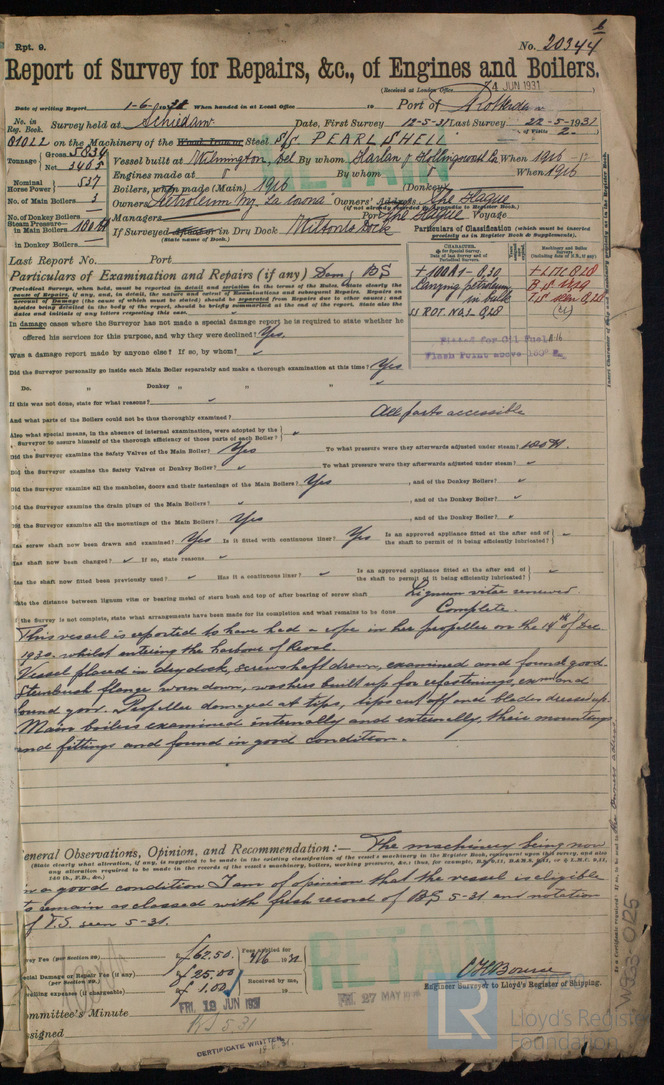 Rpt. 9.
No. 20344
Report of Survey for Repairs, &c., of Engines and Boilers.
(Received at London Office 4 JUN 1931
Date of writing Report 1-6-1931 When handed in at Local Office 19 Port of Rotterdam
No. in Reg. Book. Survey held at Schiedam Date, First Survey 12-5-31 Last Survey 22-5-1931
No. of Visits 2.
on the Machinery of the Wood, Iron or Steel S/S. PEARL SHELL
Tonnage Gross 5834 Net 3405
Vessel built at Wilmington, Del By whom Harlan & Hollingsworth When 1916
Nominal Horse Power 537
Engines made at By whom When 1916
No. of Main Boilers 3
Boilers, when made (Main) 1916 (Donkey)
No. of Donkey Boilers
Owners Petroleum My. La Corona Owners' Address The Hague
(if not already recorded in Appendix to Register Book.)
Steam Pressure in Main Boilers 180 lb
Managers Port The Hague Voyage
in Donkey Boilers
If Surveyed afloat or in Dry Dock Wiltons Dock
(State name of Dock.)
Particulars of Classification (which must be inserted precisely as in Register Book & Supplements).
Last Report No. Port
Particulars of Examination and Repairs (if any) Dam, BS
+100A1- 8,30
Carrying petroleum in bulk
SS ROT. No.1- 8,28
+LMC 8,28
Fitted for Oil Fuel 8.16
Flash Point above 150° F.
In damage cases where the Surveyor has not made a special damage report he is required to state whether he
offered his services for this purpose, and why they were declined? Yes.
Was a damage report made by anyone else? If so, by whom?
Did the Surveyor personally go inside each Main Boiler separately and make a thorough examination at this time? Yes
Do. " Donkey " " " "
If this was not done, state for what reasons?
And what parts of the Boilers could not be thoroughly examined? All parts accessible
Also what special means, in the absence of internal examination, were adopted by the Surveyor to assure himself of the thorough efficiency of those parts of each Boiler?
Did the Surveyor examine the Safety Valves of the Main Boiler? Yes To what pressure were they afterwards adjusted under steam? 180 lb.
Did the Surveyor examine the Safety Valves of Donkey Boiler? To what pressure were they afterwards adjusted under steam?
Did the Surveyor examine all the manholes, doors and their fastenings of the Main Boilers? Yes, and of the Donkey Boilers?
Did the Surveyor examine the drain plugs of the Main Boilers?, and of the Donkey Boiler?
Did the Surveyor examine all the mountings of the Main Boilers? Yes, and of the Donkey Boiler?
Has screw shaft now been drawn and examined? Yes Is it fitted with continuous liner? Yes Is an approved appliance fitted at the after end of the shaft to permit of it being efficiently lubricated?
Has shaft now been changed? If so, state reasons
Has the shaft now fitted been previously used? Has it a continuous liner? Is an approved appliance fitted at the after end of the shaft to permit of it being efficiently lubricated?
State the distance between lignum vitæ or bearing metal of stern bush and top of after bearing of screw shaft Lignum vitae renewed.
If the Survey is not complete, state what arrangements have been made for its completion and what remains to be done Complete.
This vessel is reported to have had a rope in her propeller on the 14th of Dec
1930. whilst entering the harbour of Reval.
Vessel placed in dry dock, screwshaft drawn, examined and found good.
Sternbush flange worn down, washers built up for refastenings, exam and
found good. Propeller damaged at tips, tips cut off and blades dressed up.
Main boilers examined internally and externally, their mountings
and fittings and found in good condition.
General Observations, Opinion, and Recommendation:— The machinery being now
in a good condition I am of opinion that the vessel is eligible
to remain as classed with fresh record of BS 5-31 and notation
of T.S. seen 5-31.
Survey Fee (per Section 29) f 62.50.
Special Damage or Repair Fee (if any) (per Section 29.) f 25.00
Travelling expenses (if chargeable) f 1.00
Fees applied for 4/6 1931
Received by me, 19
Engineer Surveyor to Lloyd's Register of Shipping.
Committee's Minute FRI. 19 JUN 1931
Assigned
CERTIFICATE WRITTEN
RETAIN
RETAIN
LR
Lloyd's Register
Foundation
W213-0125